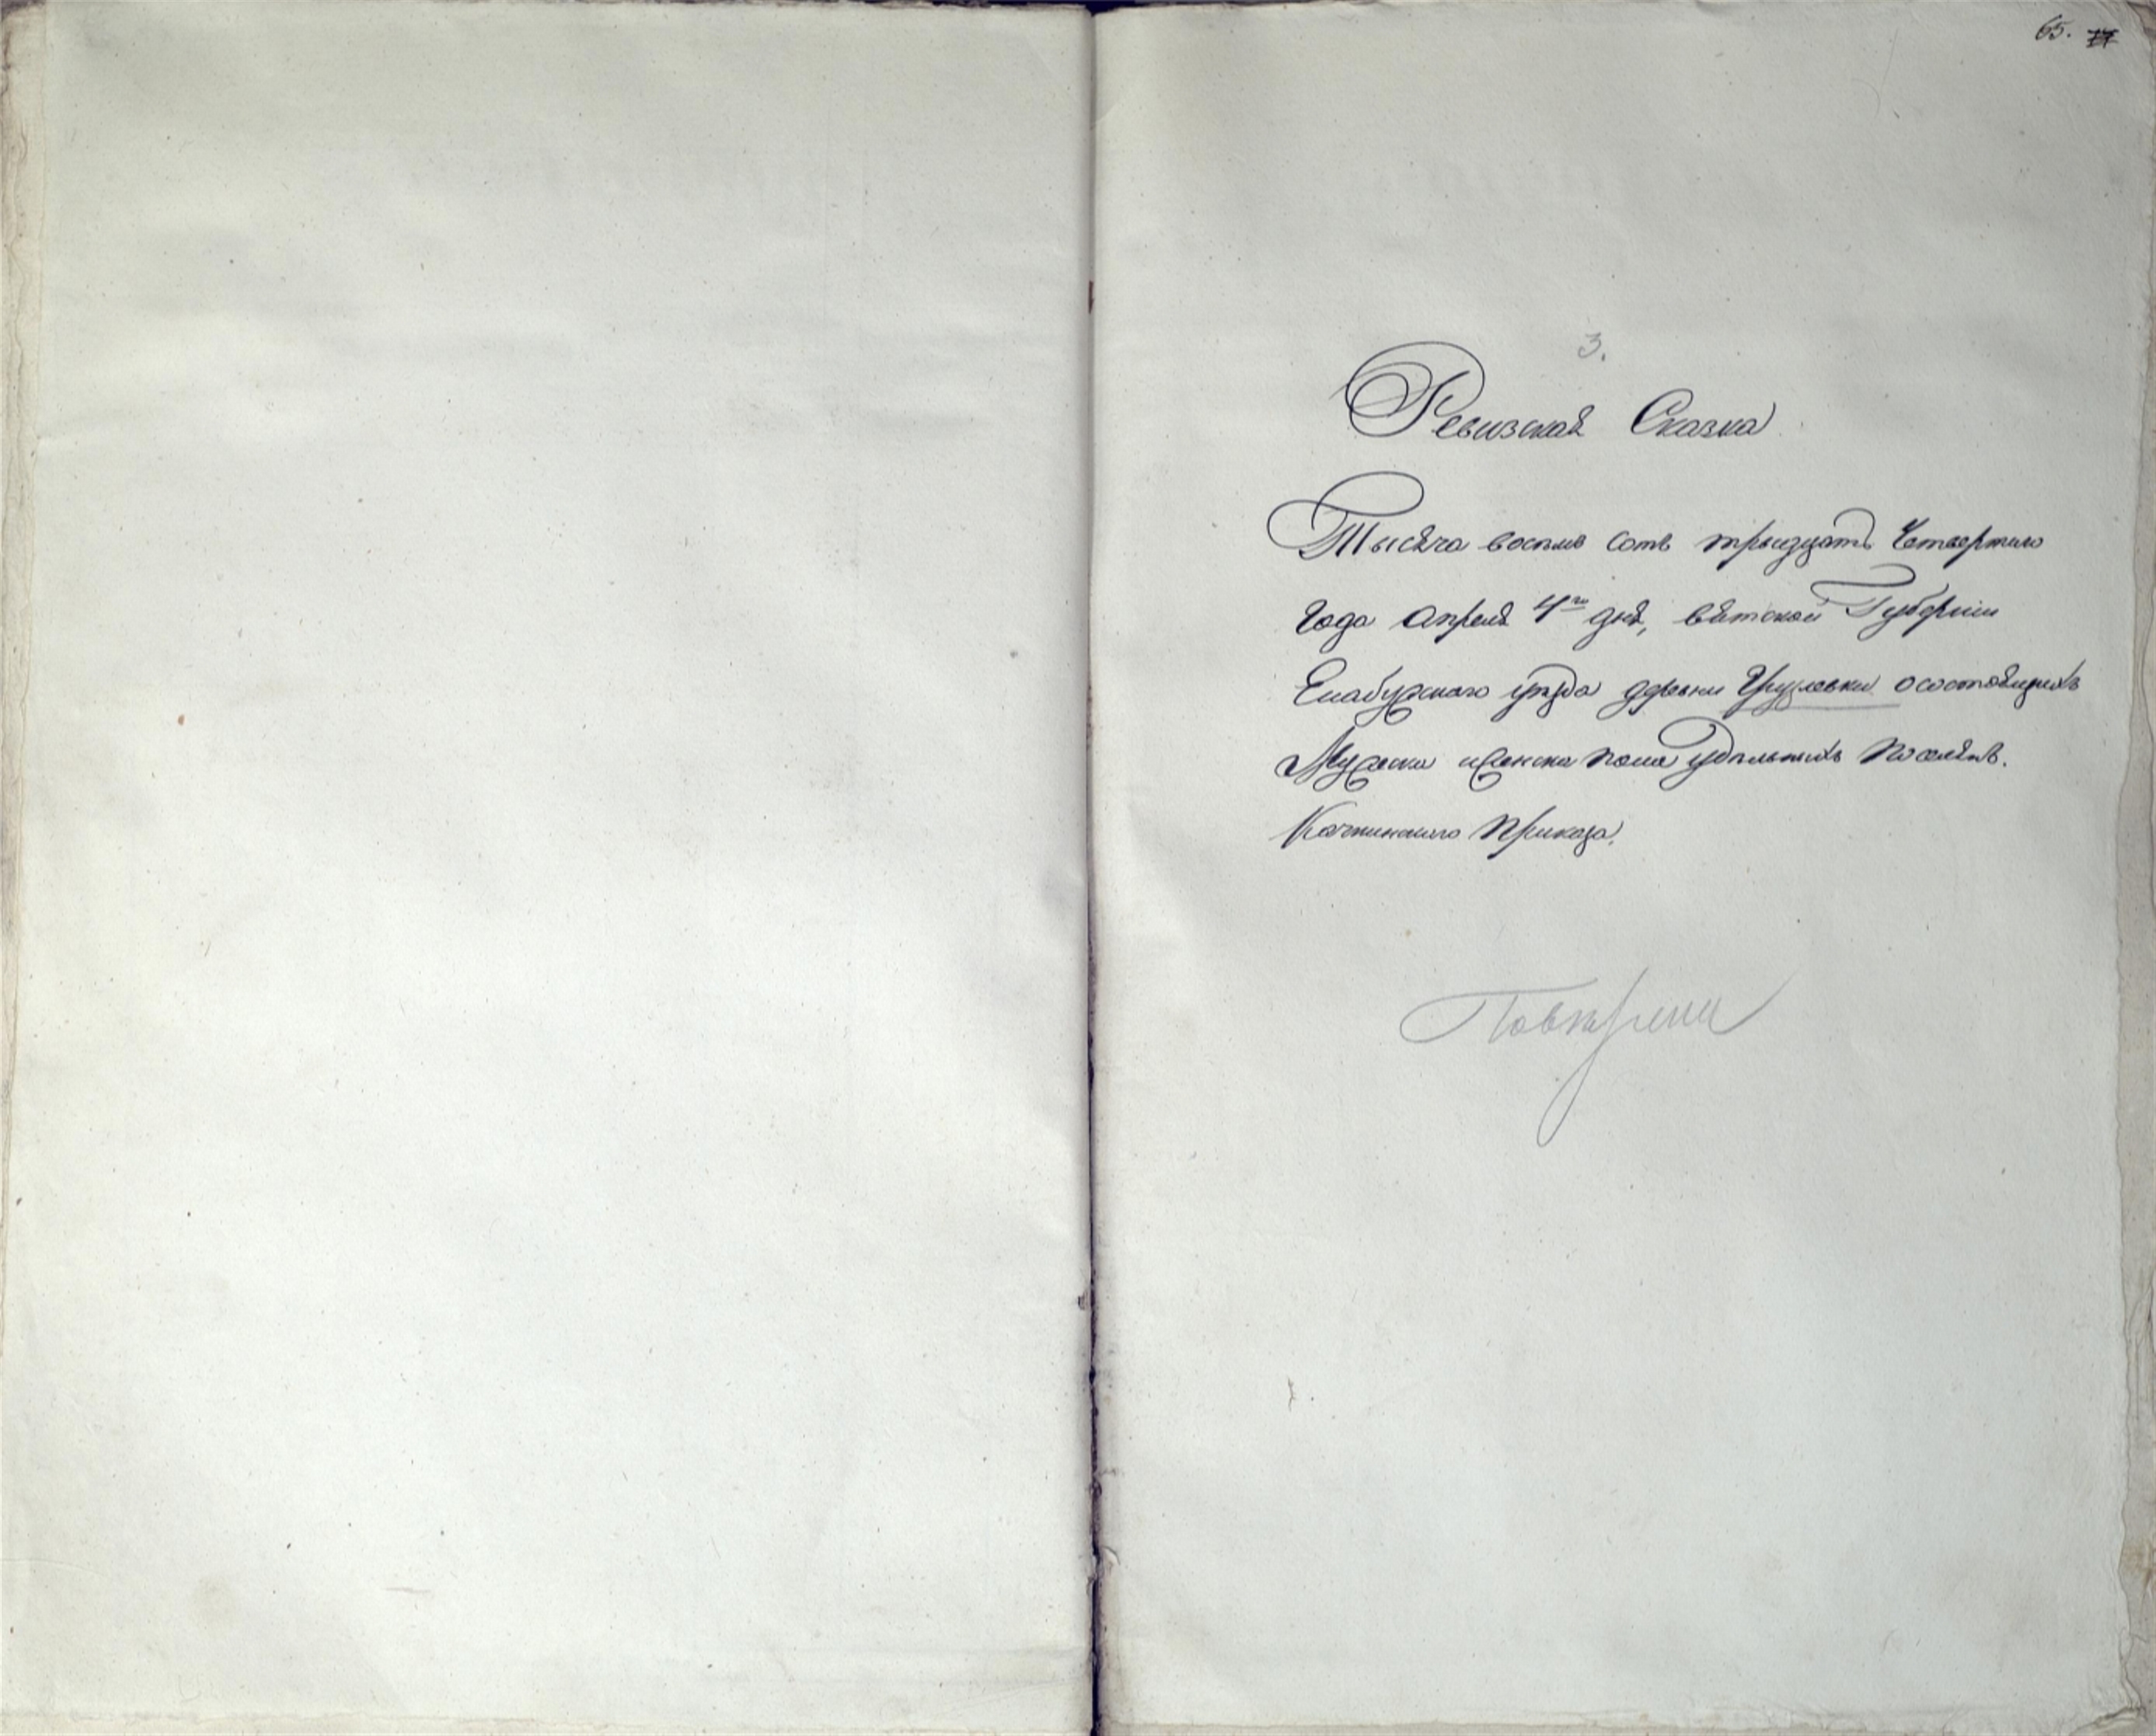 65. 77
3.
Ревизская Сказка
Тысяча восемь сотъ тридцать Четвертаго
Года апреля 4го дня, вятской Губернiи
Елабужскаго уезда деревни осостоящихъ
Мужеска иженска пола удельныхъ поселянъ.
Приказа.
Поверена